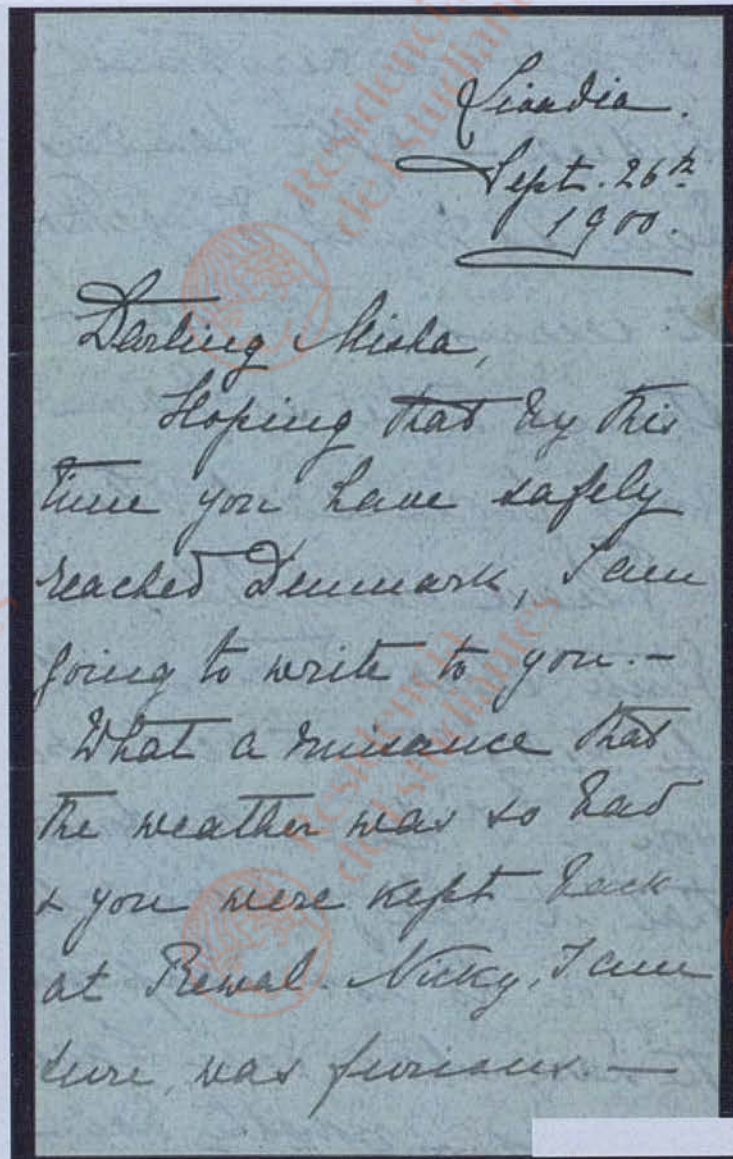 Livadia.
Sept. 26th
1900.
Darling Misha,
Hoping that by this
time you have safely
reached Denmark, I am
going to write to you. —
What a nuisance that
the weather was so bad
& you were kept back
at Rewal. Nicky, I am
sure, was furious. —
Residencia
de Estudiantes
Residencia
de Estudiantes